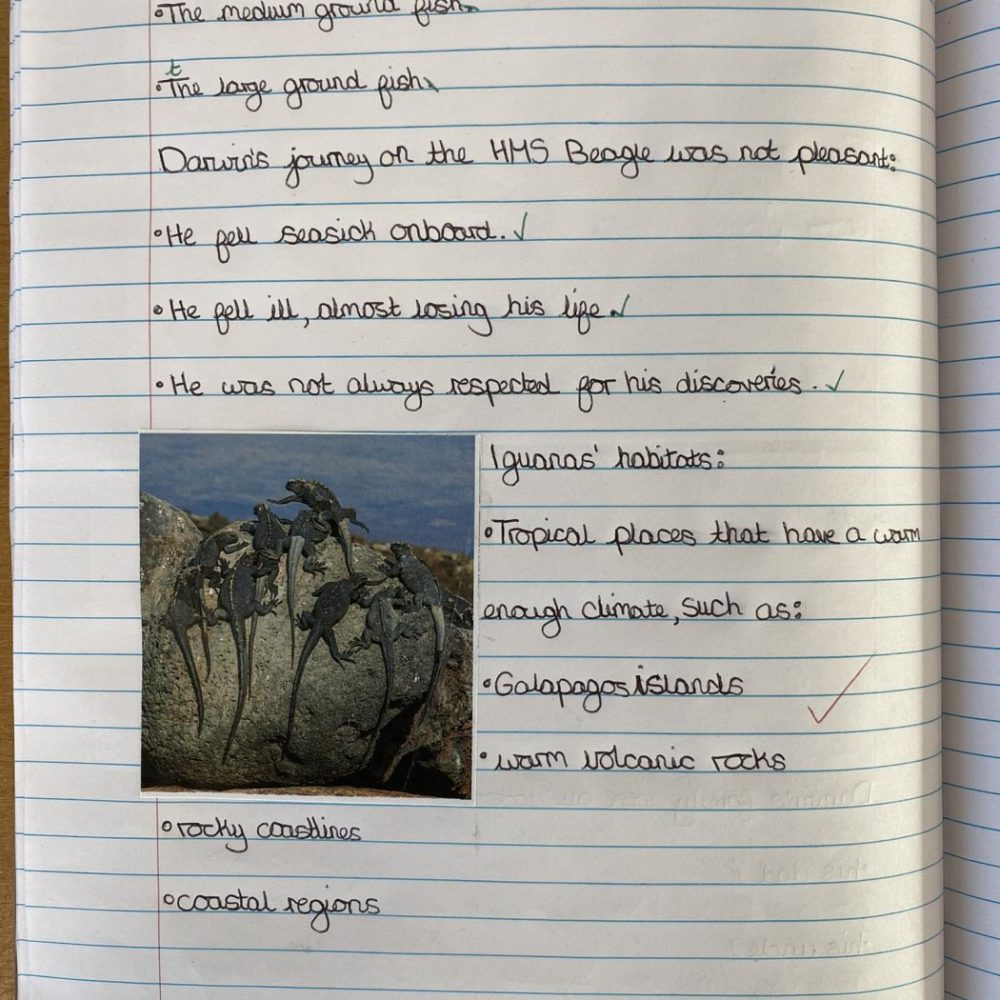 •The medium ground fish
t
•The large ground fish
Darwin's journey on the HMS Beagle was not pleasant:
•He fell seasick onboard.
•He fell ill, almost losing his life.
•He was not always respected for his discoveries.
Iguanas' habitats:
•Tropical places that have a warm
enough climate, such as:
•Galapagos islands
•warm volcanic rocks
•rocky coastlines
•coastal regions